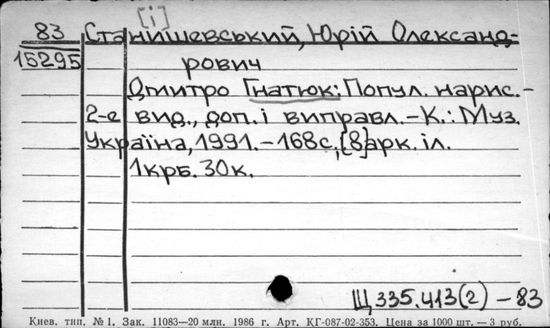 [і]
83 Станишевський, Юрій Олександ-
15295 рович
Дмитро Гнатюк: Попул. нарис.-
2-е вид., доп. і виправл.-К.: Муз.
Україна, 1991.-168с., [8]арк. іл.
1крб. 30к.
Щ335.413(2) - 83
Киев. тип. № 1. Зак. 11083—20 млн. 1986 г. Арт. КГ-087-02-353. Цена за 1000 шт. — 3 руб.